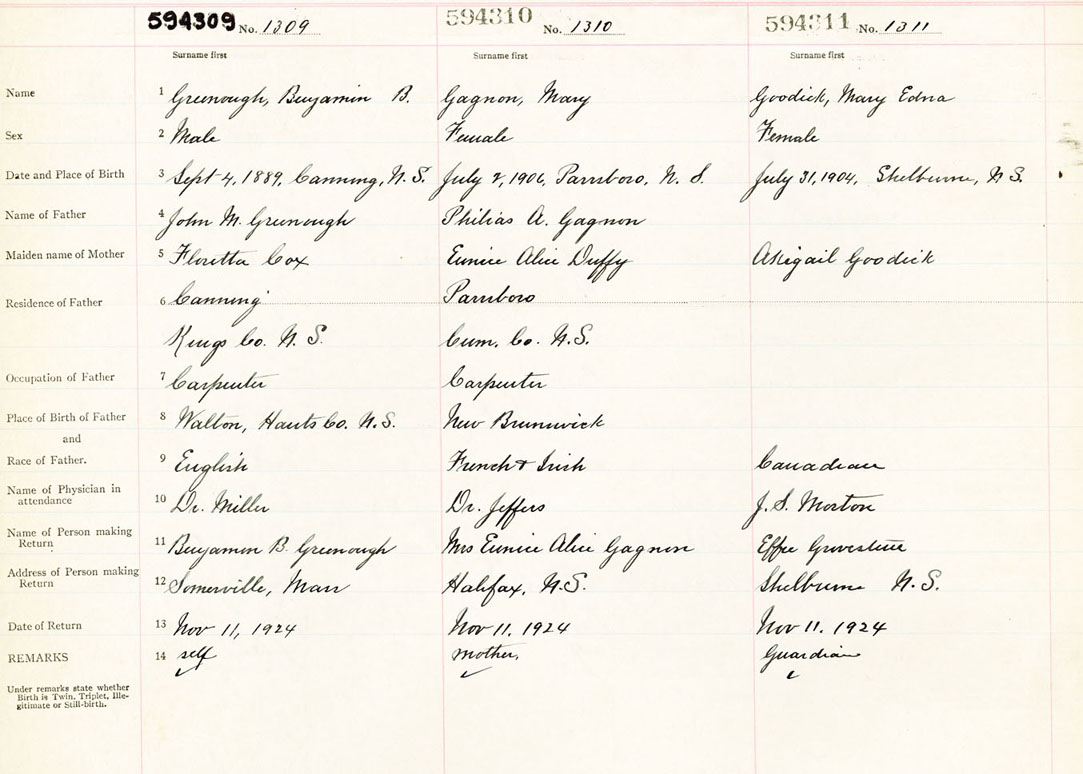 594309 No. 1309 594310 No. 1310 594311 No. 1311
Surname first Surname first Surname first
Name 1 Greenough, Benjamin B. Gagnon, Mary Goodick, Mary Edna
Sex 2 Male Female Female
Date and Place of Birth 3 Sept 4, 1889, Canning, N.S. July 2, 1906, Parrsboro, N. S. July 31, 1904, Shelburne, N S.
Name of Father 4 John M. Greenough Philias A. Gagnon
Maiden name of Mother 5 Floretta Cox Eunice Alice Duffy Abigail Goodick
Residence of Father 6 Canning Parrsboro
Kings Co. N. S. Cum. Co. N.S.
Occupation of Father 7 Carpenter Carpenter
Place of Birth of Father 8 Walton, Hants Co. N.S. New Brunswick
and
Race of Father. 9 English French & Irish Canadian
Name of Physician in
attendance 10 Dr. Miller Dr. Jeffers J. S. Morton
Name of Person making
Return 11 Benjamin B. Greenough Mrs Eunice Alice Gagnon Effie
Address of Person making
Return 12 Somerville, Mass Halifax, N.S. Shelburne N.S.
Date of Return 13 Nov 11, 1924 Nov 11. 1924 Nov 11. 1924
REMARKS 14 self mother. Guardian
Under remarks state whether
Birth is Twin, Triplet, Ille-
gitimate or Still-birth.